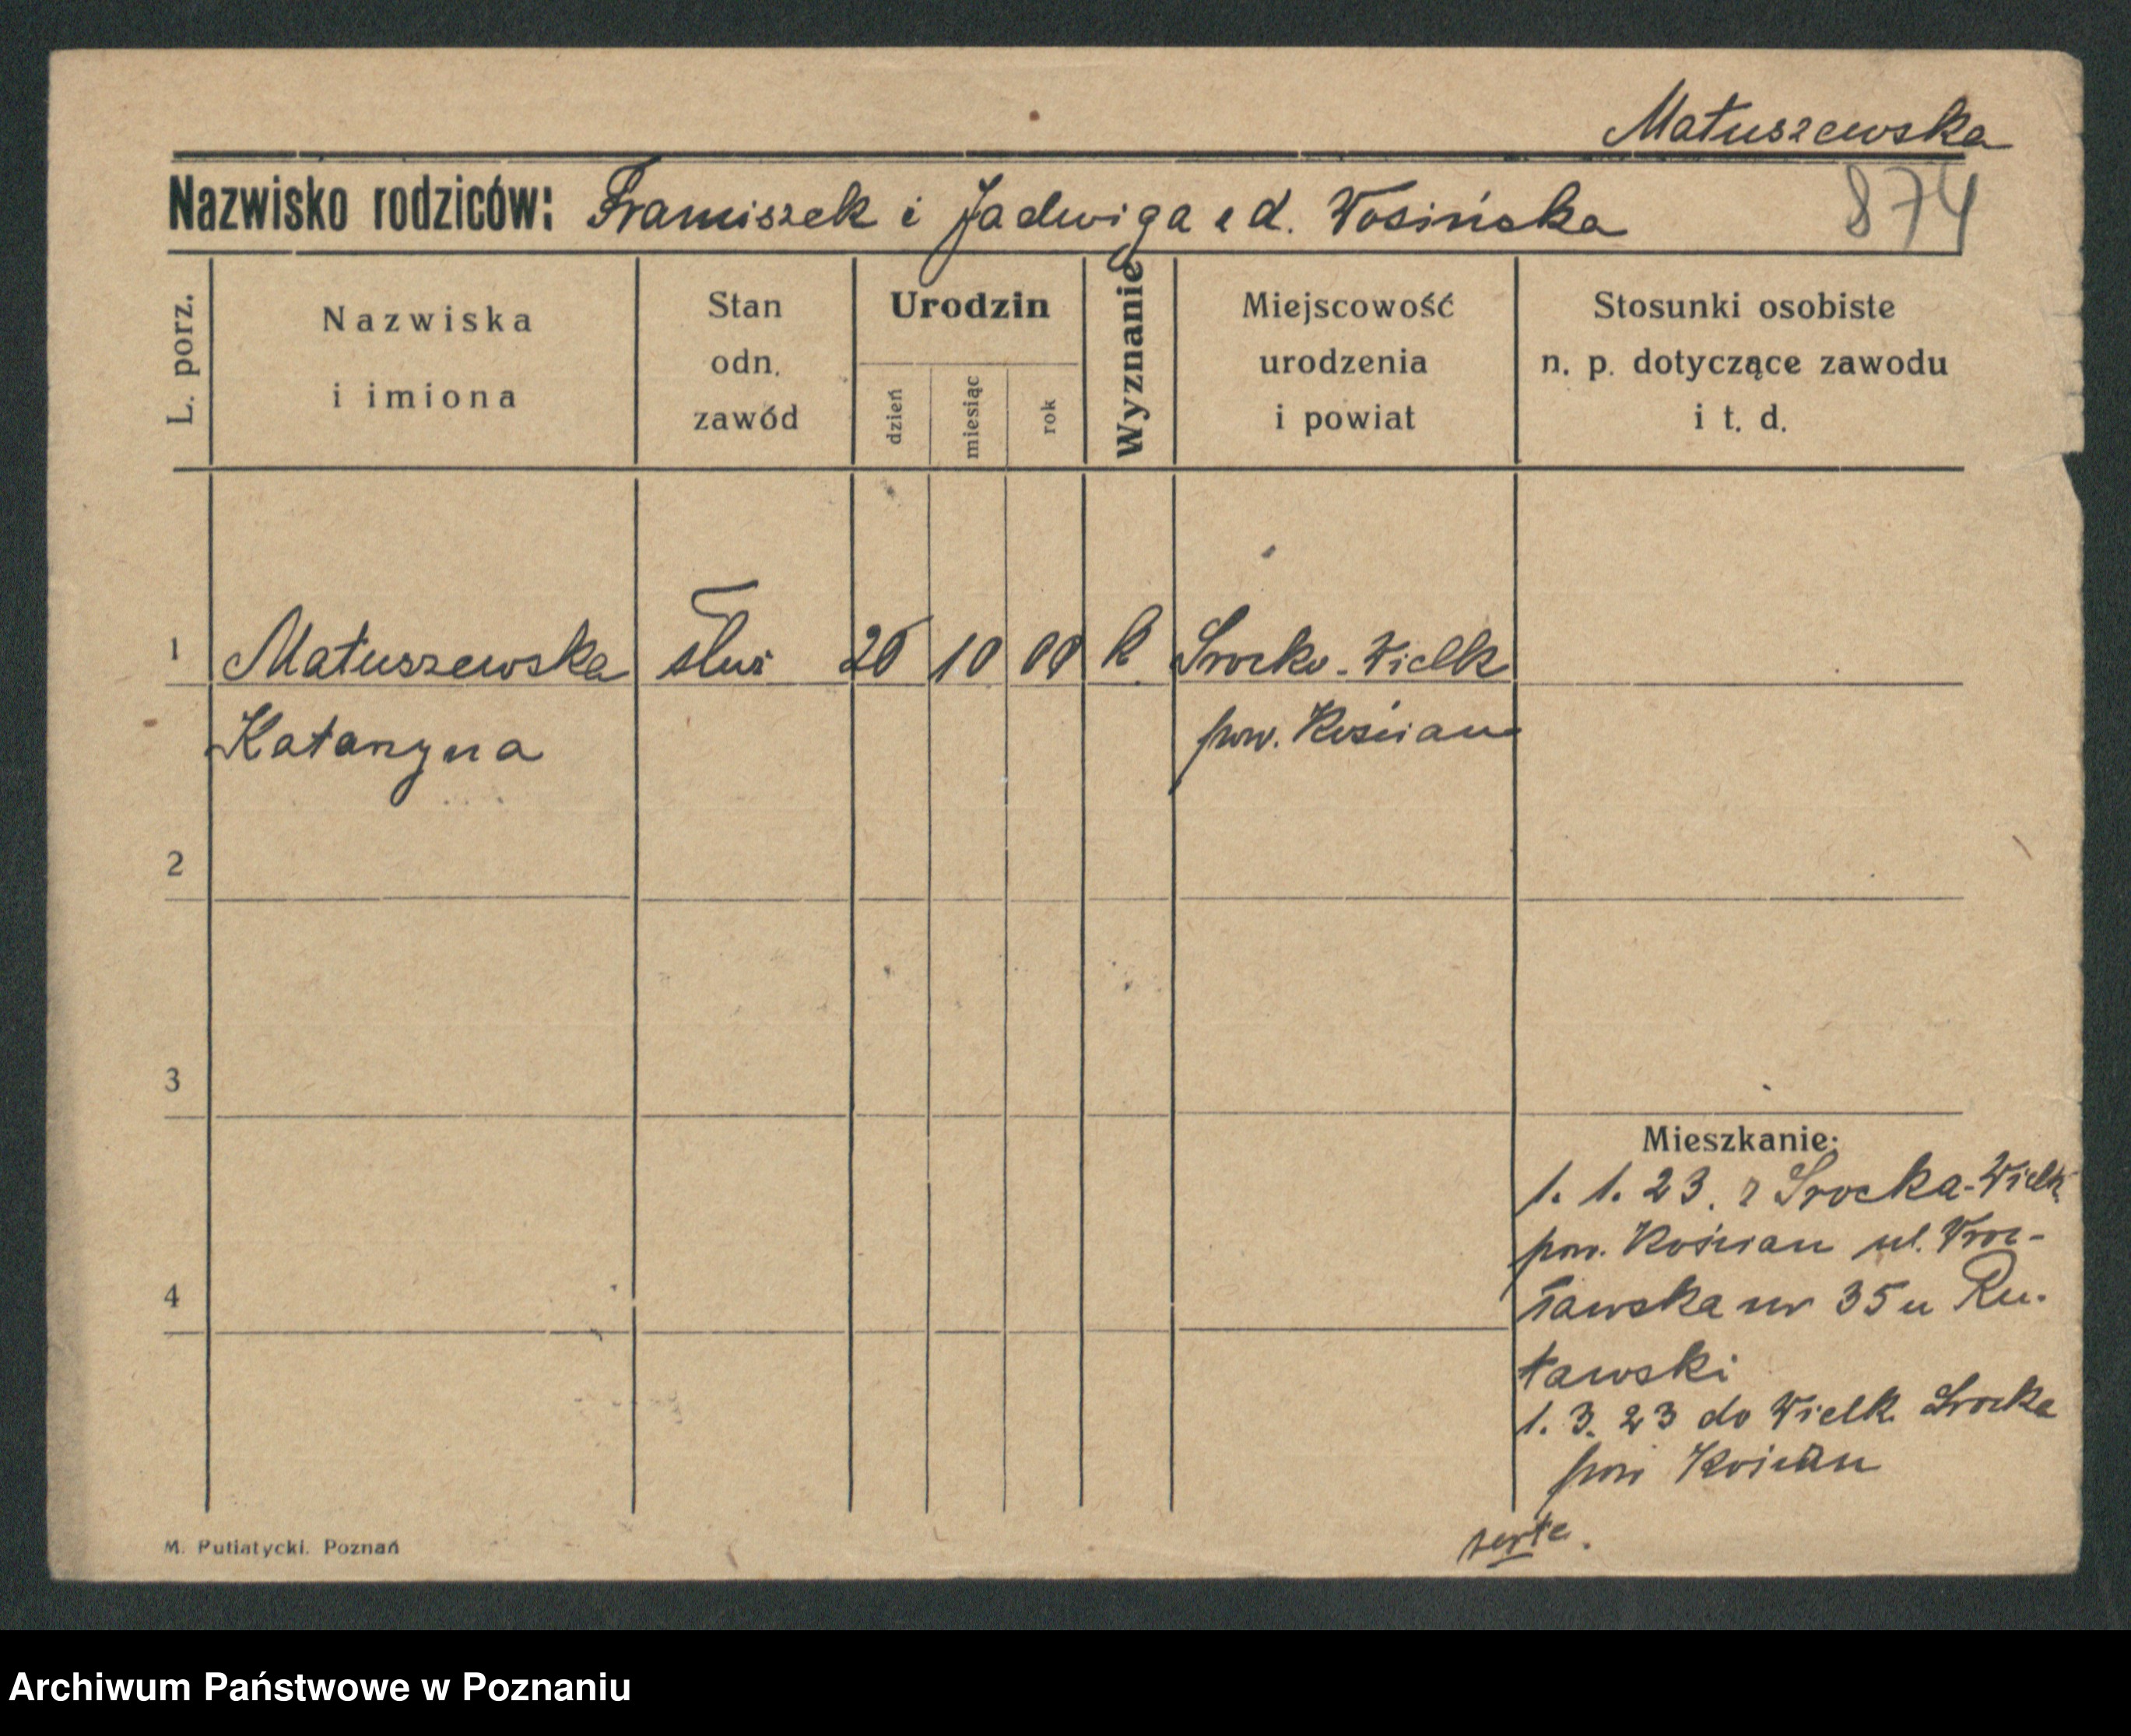 Matuszewska
Nazwisko rodziców: Franciszek i Jadwiga z d. Wosińska 874
L. porz.
Nazwiska
i imiona
Stan
odn.
zawód
Urodzin
dzień
miesiąc
rok
Wyznanie
Miejscowość
urodzenia
i powiat
Stosunki osobiste
n. p. dotyczące zawodu
i t. d.
1 Matuszewska służ 10 00 k. Srocko-Wielk
Katarzyna pow. Kościan
2
3
4
Mieszkanie:
1. 1. 23. z Srocka-Wielk
pow. Kościan ul. Wroc-
ławska nr 35 u
1. 3. 23 do Wielk. Srocka
pow Kościan
verte.
M. Putiatycki. Poznań
Archiwum Państwowe w Poznaniu